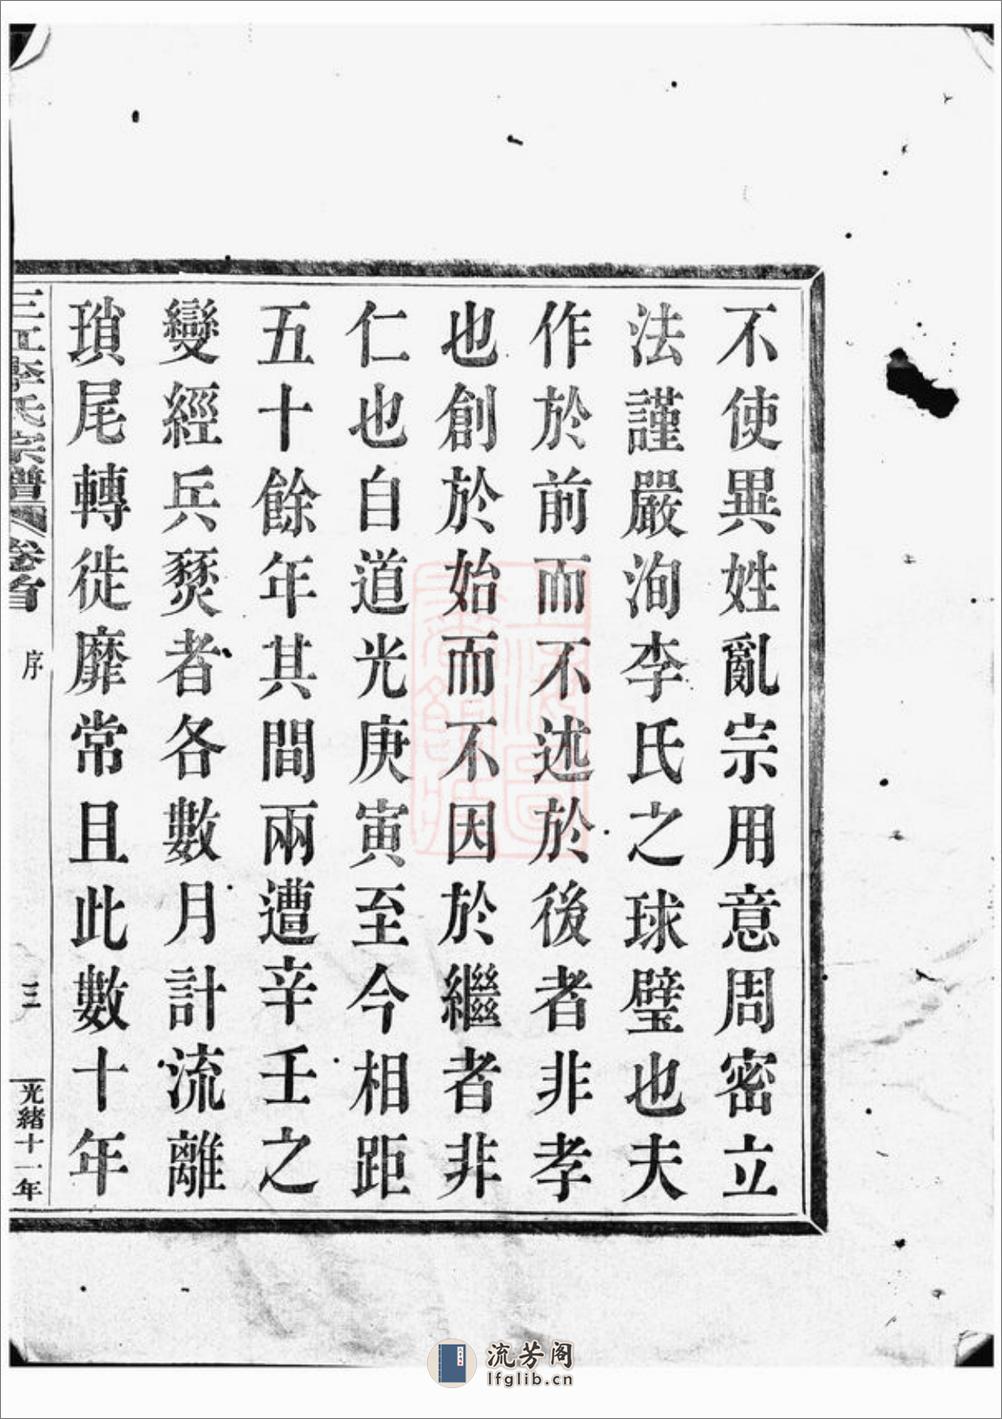 不使異姓亂宗用意周密立
法謹嚴洵李氏之球璧也夫
作於前而不述於後者非孝
也創於始而不因於繼者非
仁也自道光庚寅至今相距
五十餘年其間兩遭辛壬之
變經兵燹者各數月計流離
瑣尾轉徙靡常且此數十年
三江李氏宗譜 卷首 序 三 光緒十一年
流芳阁
lfglib.cn